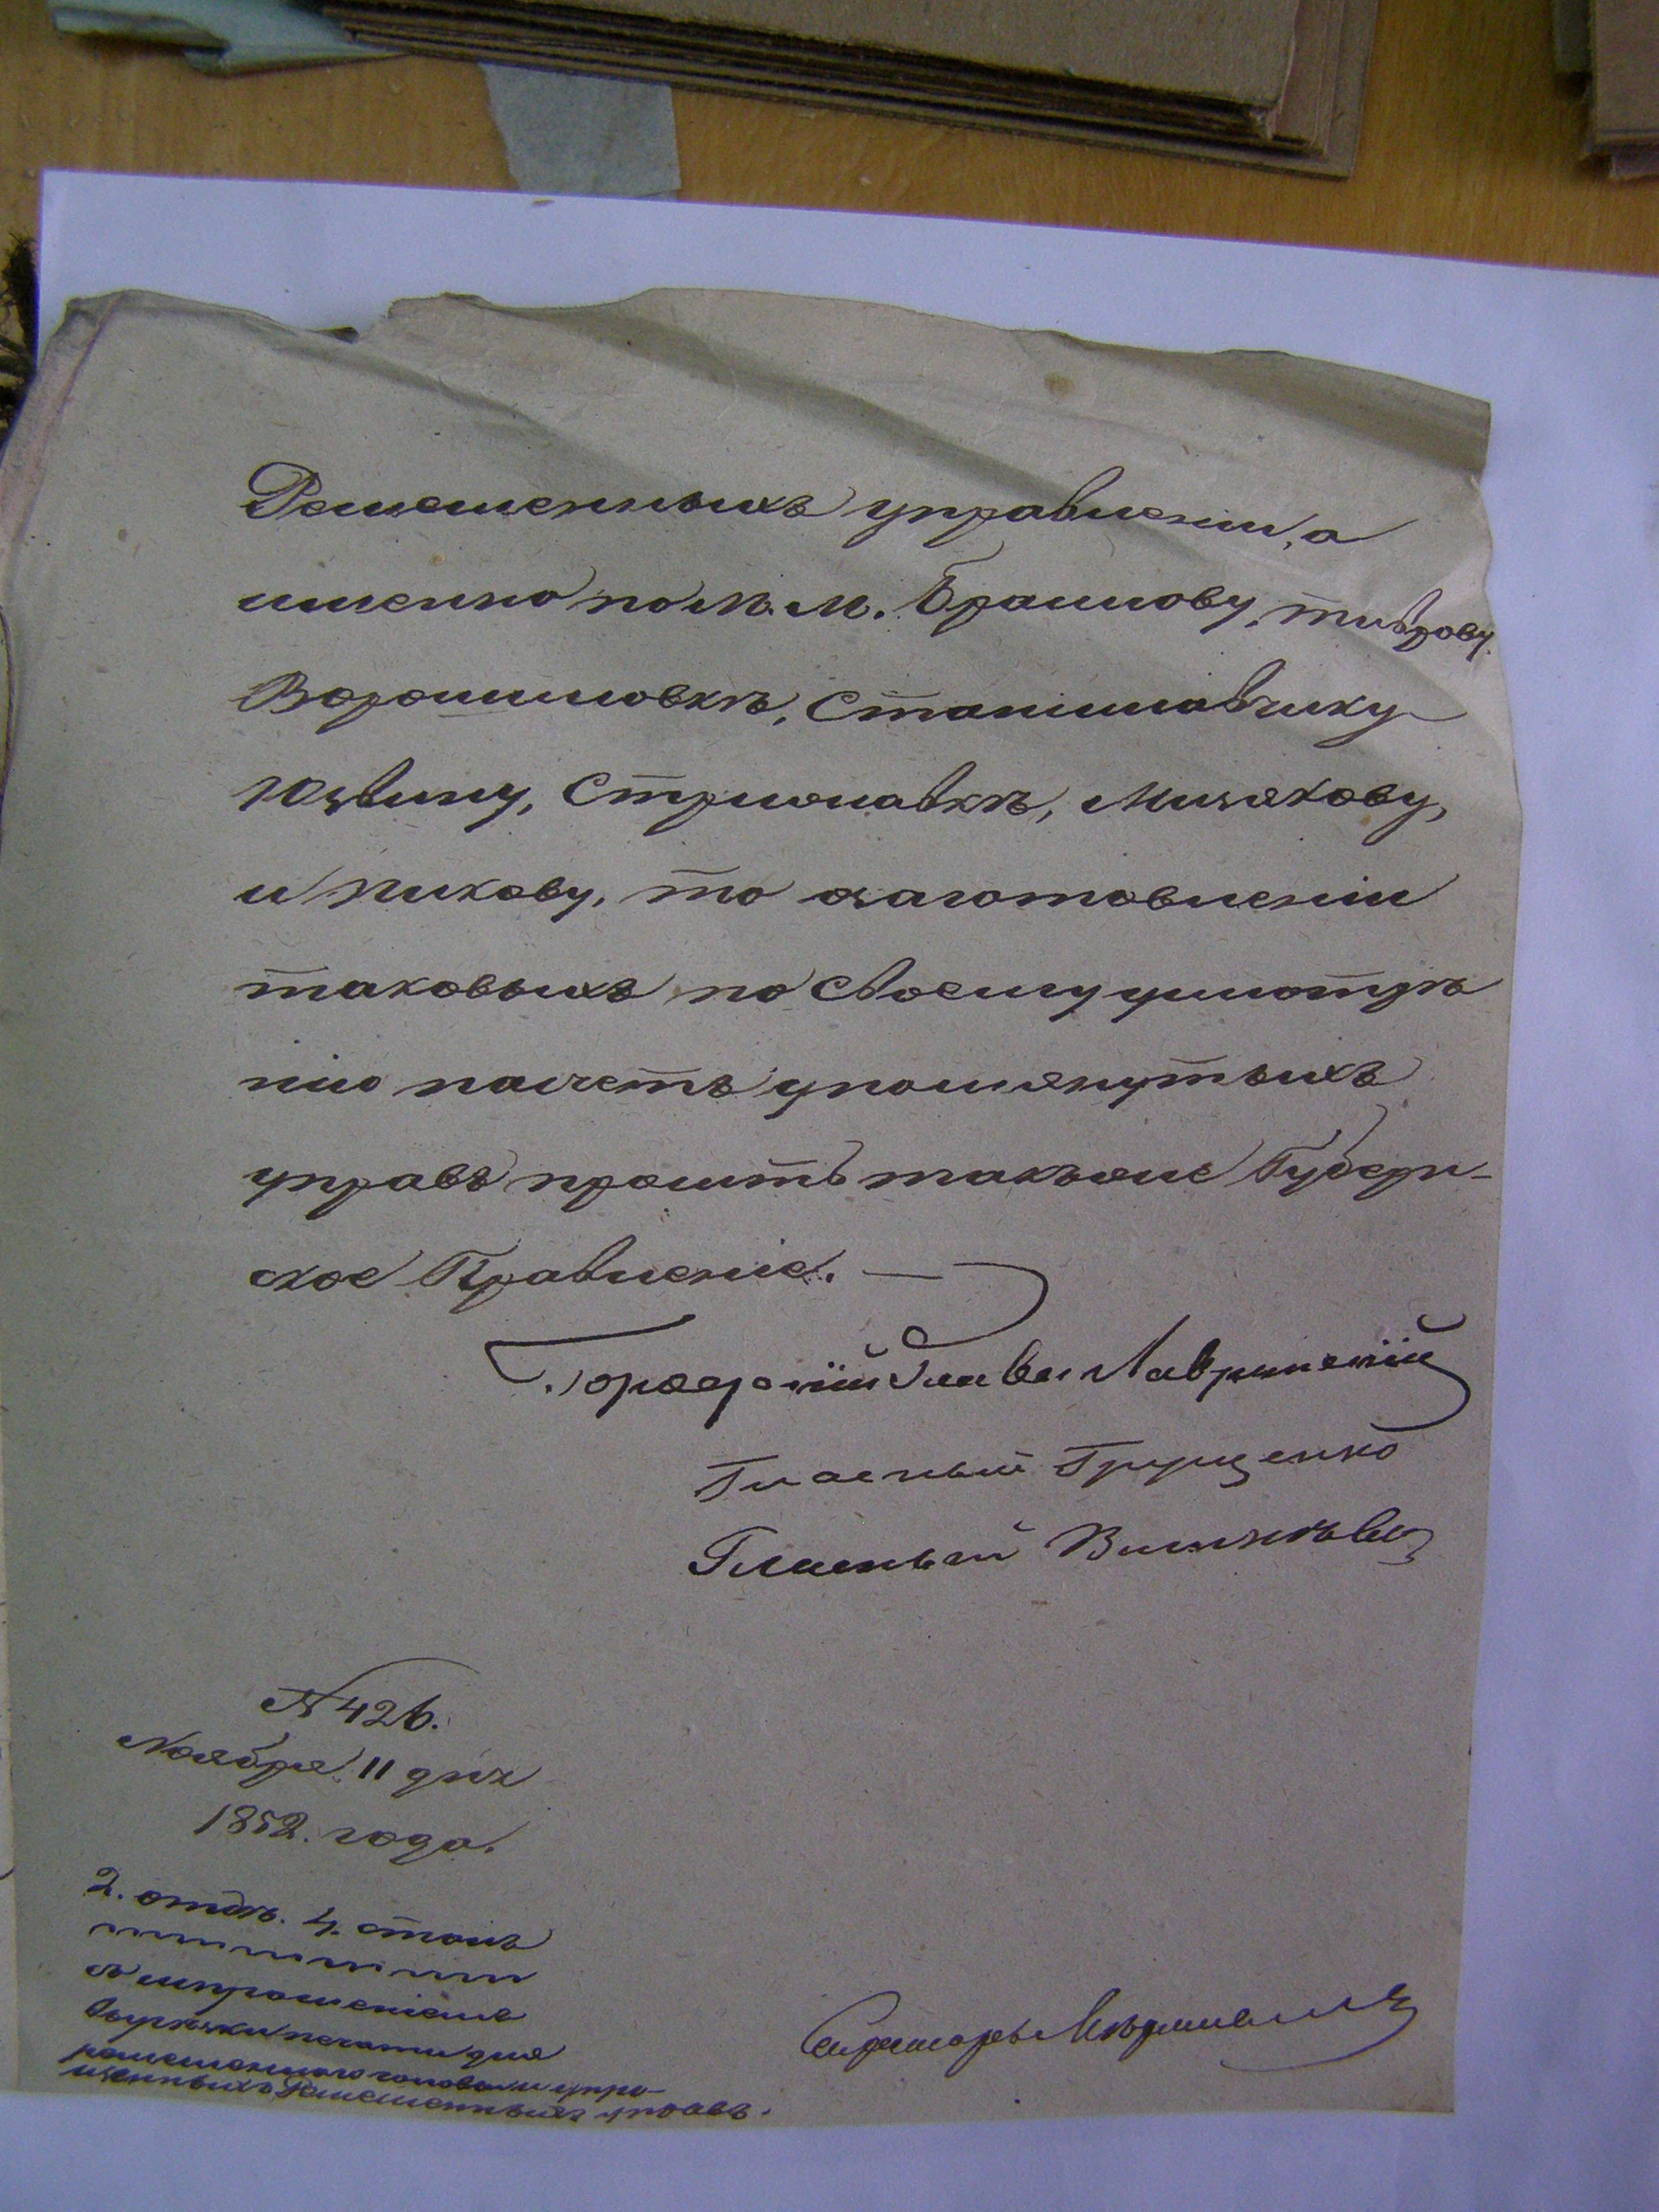 Ремесленныхъ управленій, а
именно по м. м. Браилову, Тиврову
Ворошиловкѣ, Станиславчику
Юзвину, Стрижавкѣ, Мизякову,
и Пикову, то о заготовленіи
таковыхъ по своему усмотрѣ
нію на счетъ упомянутыхъ
управъ просить таковое Губерн-
ское Правленіе.
Городскій Глава Лавринскій
Гласный Грущенко
Гласный
№ 426.
Ноября 11 дня
1852. года.
2. отдѣ. 4. столъ
съ испрошеніемъ
вырѣзки печати для
ремесленнаго головы и упра-
Ремесленныхъ управъ.
Секретарь